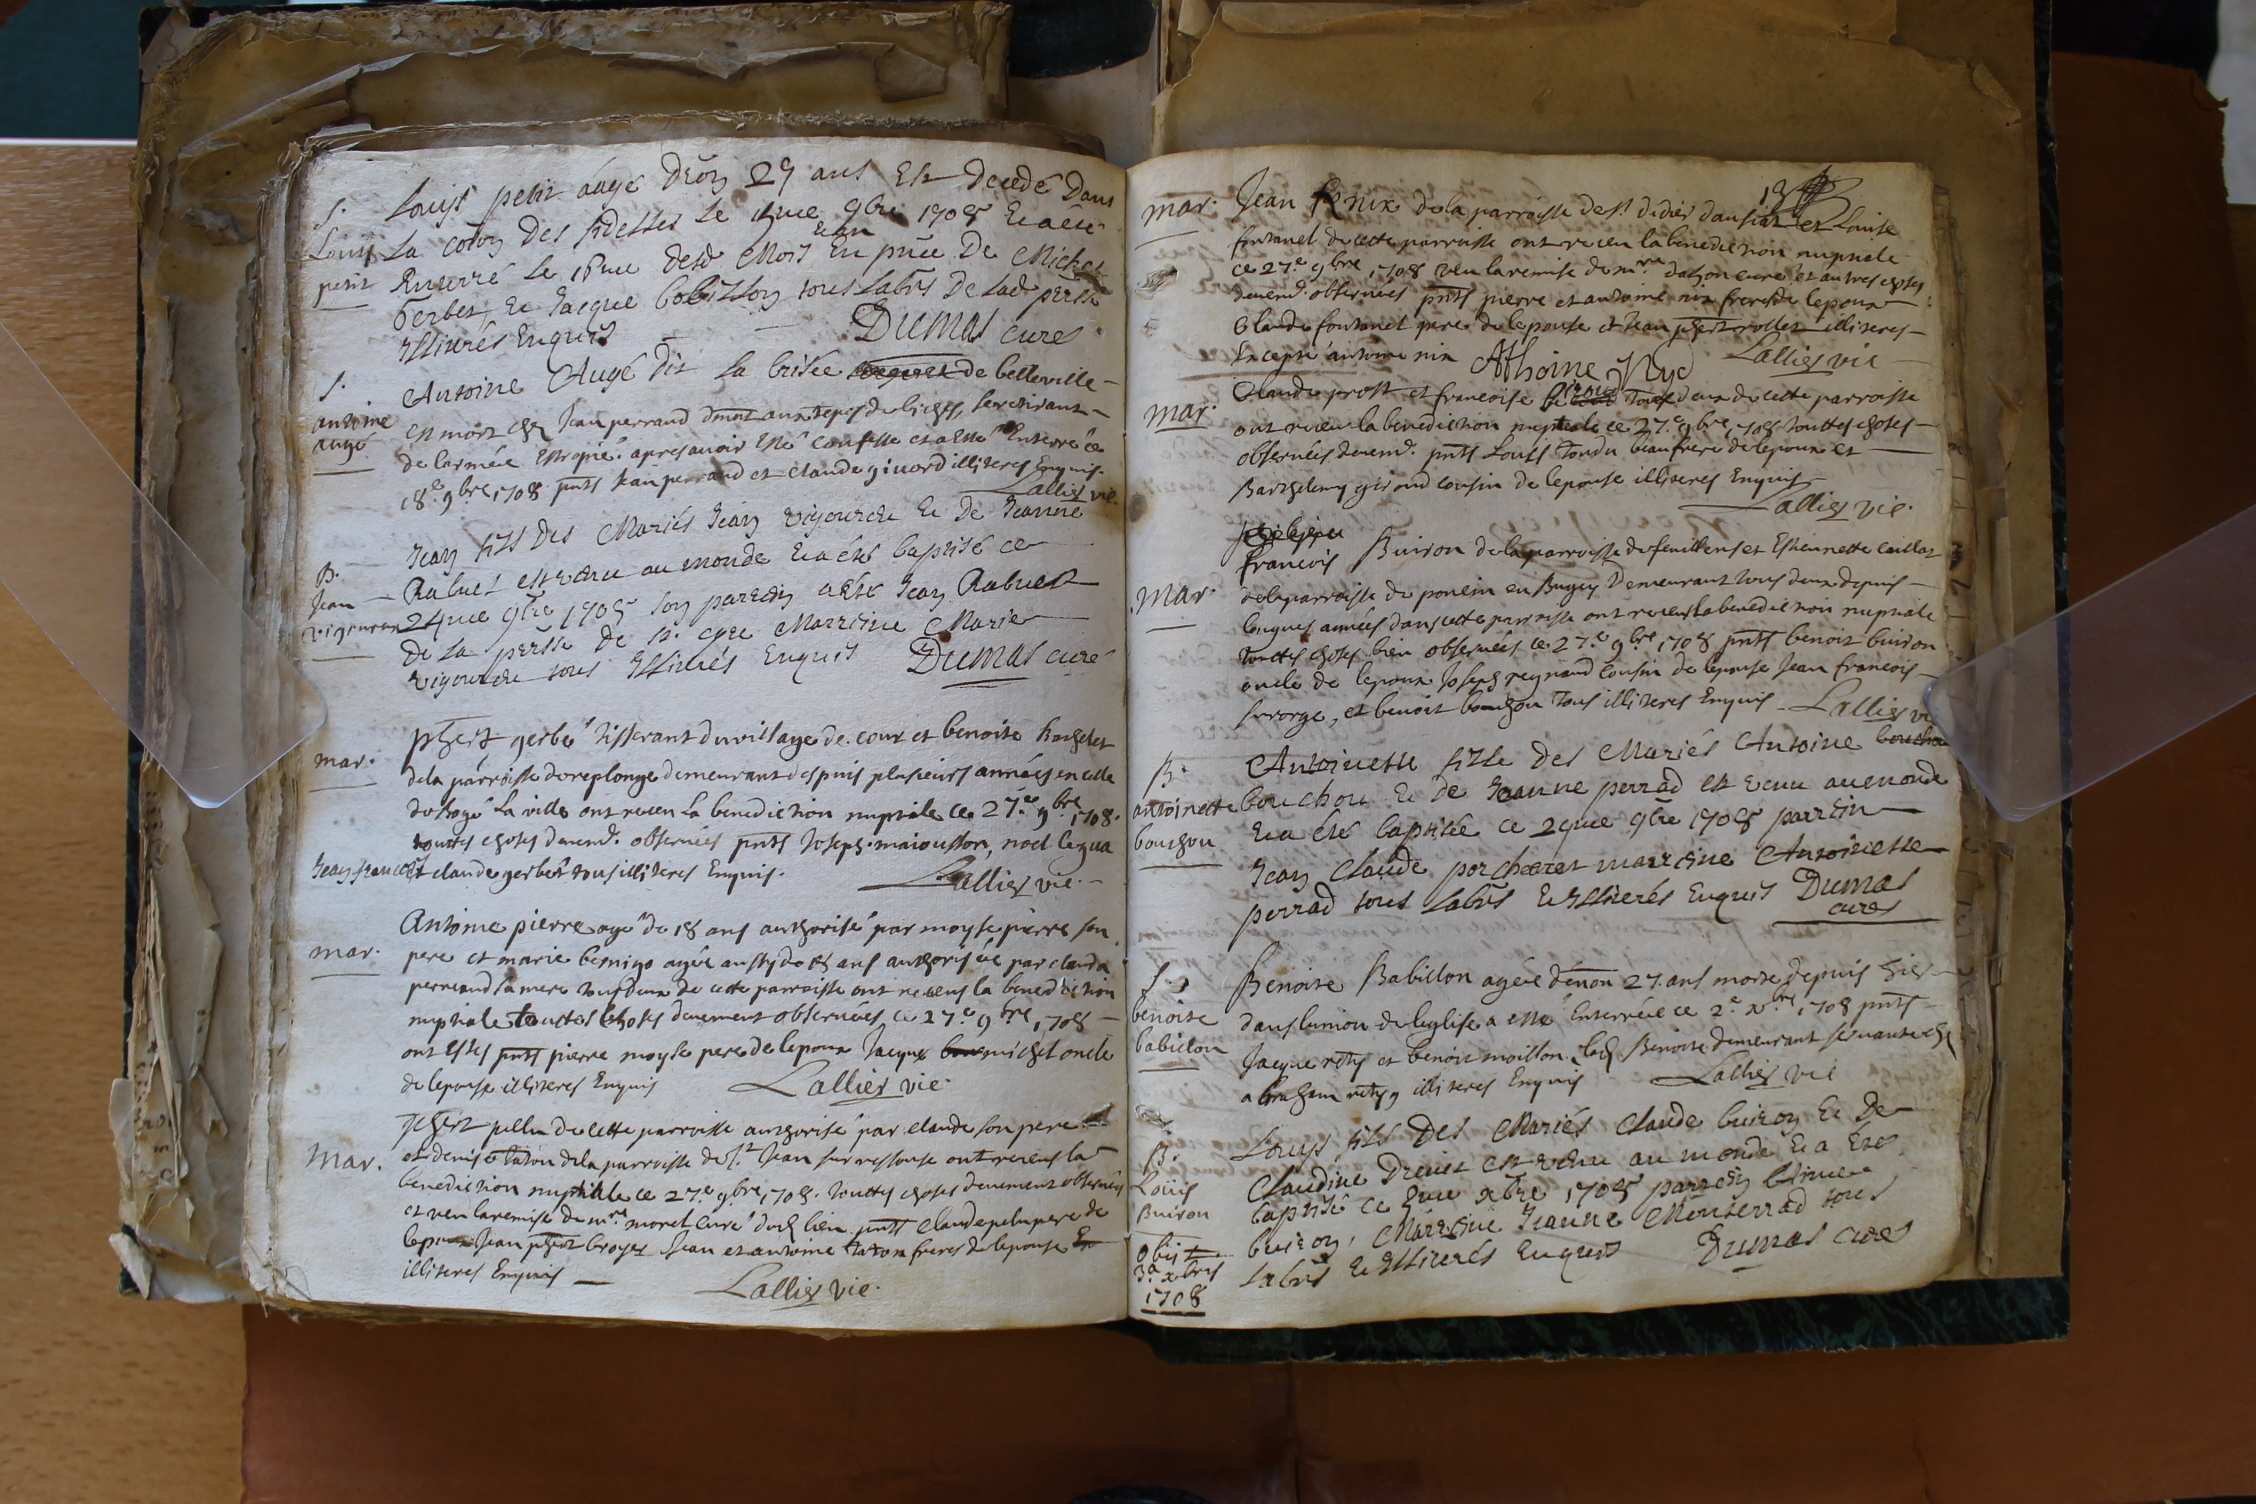 S.
Louis
petit
Louis petit áagé denõ 29 ans Est decedé Dans
La coõn des fidelles Le 17me 9bre 1708 Et a été
Enterré Le 18me desd Mois Et an En pñce De Michel
Gerbet, Et Jacque bobillon tous Labrs De Lad persse
Illitérés Enquis Dumas curé
S.
antoine
augé
Antoine Augé dit La brisée de belleville
est mort chez Jean perrand se retirant
de larmée Estropié apres avoir Esté confessé et a Esté Enterré ce
18e 9bre 1708 pnts Jean perrand et claude givord illiteres Enquis.
Lallier vic.
B.
Jean
vigourou
Jean fils Des Mariés Jean vigourou Et De Jeanne
Rabuet est venu au monde Et a été baptisé ce
24me 9bre 1708 son parrein a été Jean Rabuet
De La persse De st. cyre Marreine Marie
vigourou tous Illitérés Enquis Dumas curé
mar.
phert gerbe tisserant du village de cour et benoite
de la parroisse de replonge demeurant despuis plusieurs années en celle
de Bagé La ville ont receu La benediction nuptiale ce 27e 9bre 1708.
touttes choses devemt. observées pnts Joseph maiousson, noel legua
Jean françois
et claude gerbe tous illiteres Enquis. Lallier vic.
mar.
Antoine pierre agé de 18 ans authorisé par moyse pierre son
pere et marie bernigo agée aussy de 18 ans authorisée par clauda
perreaud sa mere tous deux de cette parroisse ont receus la benediction
nuptiale touttes choses devement observées ce 27e 9bre 1708
ont Estes pnts pierre moyse pere de lepoux Jacque michel oncle
de lepouse illiteres Enquis Lallier vic.
Mar.
phert pellu de cette parroisse authorisé par claude son pere
et denise taton de la parroisse de st Jean sur ressouse ont receus la
benediction nuptiale ce 27e 9bre 1708. touttes choses devement observées
et veu la remise de mre. morel curé dud lieu pnts claude pelu pere de
lepoux Jean phert broyer Jean et antoine taton freres de lepouse
illiteres Enquis Lallier vic.
13
mar.
Jean nix de la parroisse de st didier daussiat et Louise
fontanel de cette parroisse ont receu la benediction nuptiale
ce 27e 9bre 1708 veu la remise de mre dagon curé et autres choses
devemt. observées pnts pierre et antoine nix freres de lepoux
Claude fontanel pere de lepouse et Jean phert rollet illiteres
Excepté antoine nix Athoine Nyc Lallier vic
mar.
Claude prost et francoise tous deux de cette parroisse
ont receu la benediction nuptiale ce 27e 9bre 1708 touttes choses
observées devemt. pnts Louis Tondu beaufrere de lepoux et
Barthelemy girond cousin de lepouse illiteres Enquis
Lallier vic.
mar.
francois Buiron de la parroisse de feuillens et Estiennette caillat
de la parroisse de poncin en Bugey demeurant tous deux depuis
longues années dans cette parroisse ont receus la benediction nuptiale
touttes choses bien observées ce 27e 9bre 1708 pnts benoit buiron
oncle de lepoux Joseph reynaud cousin de lepouse Jean francois
ferrorge, et benoit bouchou tous illiteres Enquis Lallier vic
B.
antoinette
bouchou
Antoinette fille Des Mariés Antoine
bouchou Et De Jeanne perrad est venu au monde
Et a été baptisée ce 29me 9bre 1708 parrein
Jean Claude porcheret marreine Antoinette
perrad tous Labrs Et Illitérés Enquis Dumas
curé
S.
benoite
babillon
Benoite Babillon agée denon 27 ans morte depuis hier
dans lunion de leglise a esté Enterrée ce 2e xbre 1708 pnts
Jacque rety et benoit moillon lad Benoite demeurant servante chez
abraham rety illiteres Enquis Lallier vic
B.
Loüis
Buiron
obiit
3a xbris
1708
Louis fils Des Mariés Claude buiron Et De
Claudine Drevet est venu au monde Et a été
baptisé ce 2me xbre 1708 parrein
buiron, Marreine Jeanne Monterrad tous
Labrs Et Illitérés Enquis Dumas curé